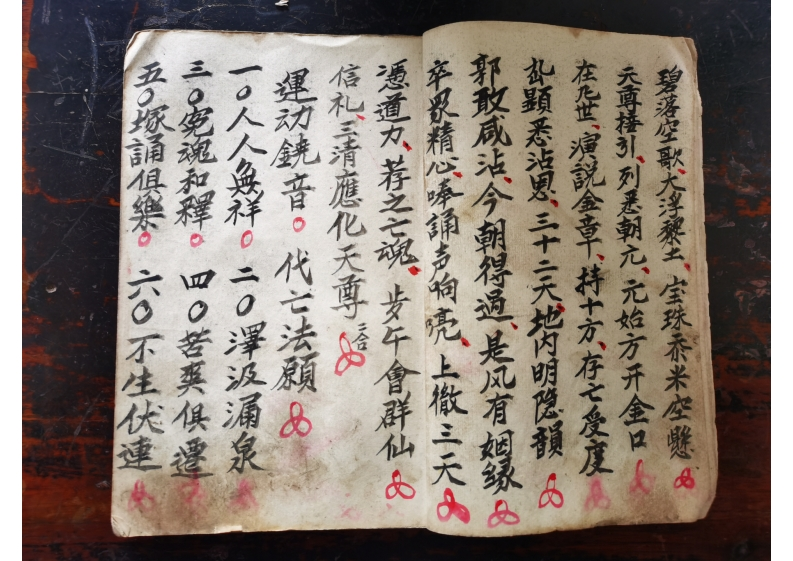 碧落空歌、大浮黎土、宝珠黍米空懸
天尊接引、列悉朝元、元始方开金口
在凡世、演説金章、持十方、存亡受度
顕悉沾恩、三十二天、地内明隐韻
郭敢咸沾、今朝得遇、是风有姻缘
卒眾精心、唪誦声响亮、上徹三天
憑道力、荐之亡魂、步午會群仙
信礼、三清應化天尊 三合
運动鐃音。代亡法願
一〇人人無祥。二〇澤汲涌泉
三〇冤魂和釋。四〇苦爽俱遷
五〇塚誦俱樂。六〇不生伏連